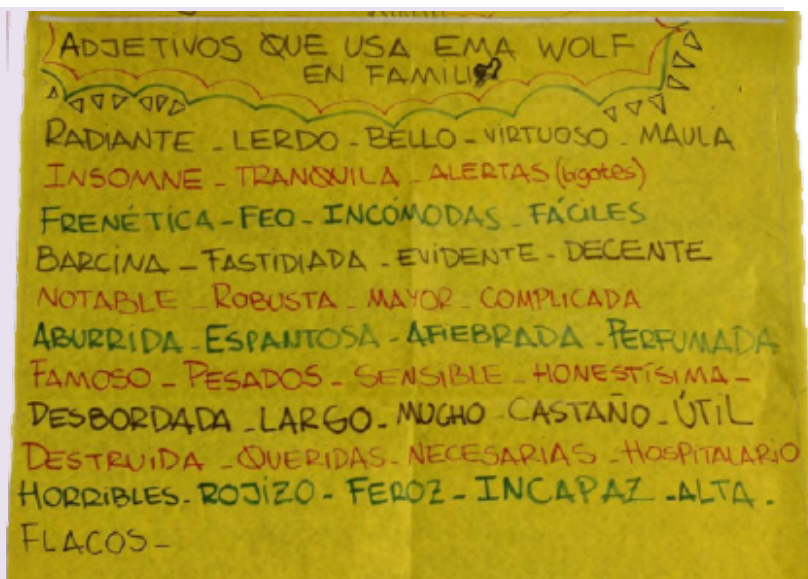 ADJETIVOS QUE USA EMA WOLF
EN FAMILIA
RADIANTE - LERDO - BELLO - VIRTUOSO - MAULA
INSOMNE - TRANQUILA - ALERTAS (bigotes)
FRENÉTICA - FEO - INCÓMODAS - FÁCILES
BARCINA - FASTIDIADA - EVIDENTE - DECENTE
NOTABLE - ROBUSTA - MAYOR - COMPLICADA
ABURRIDA - ESPANTOSA - AFIEBRADA - PERFUMADA
FAMOSO - PESADOS - SENSIBLE - HONESTÍSIMA -
DESBORDADA - LARGO - MUCHO - CASTAÑO - ÚTIL
DESTRUIDA - QUERIDAS - NECESARIAS - HOSPITALARIO
HORRIBLES - ROJIZO - FEROZ - INCAPAZ - ALTA -
FLACOS -